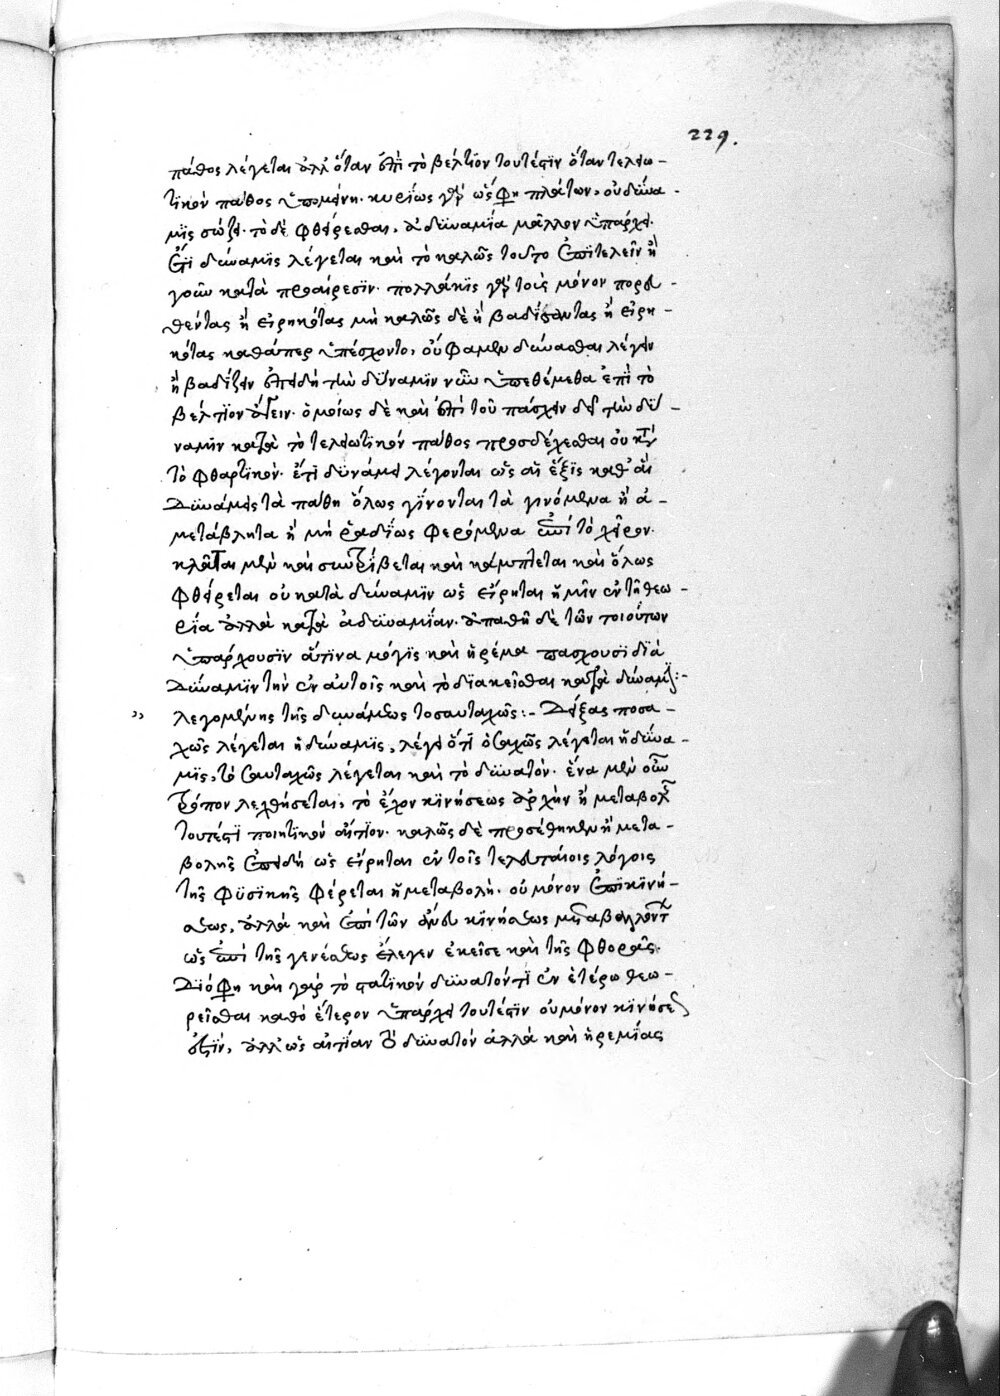 229.
πάθος λέγεται ἀλλ' ὅταν ἐπὶ τὸ βέλτϊον τουτέστϊν ὅταν τελειω-
τϊκὸν πάθος ὑπομείνη. κυρΐως γὰρ ὥς φη πλάτων, οὐ δύνα-
μϊς σώζει. τὸ δὲ φθείρεσθαι, ἀδυναμΐα μᾶλλον ὑπάρχει.
ἔτϊ δύναμϊς λέγεται καὶ τὸ καλῶς τοῦτο ἐπϊτελεῖν ἢ
γοῦν κατὰ προαίρεσϊν. πολλάκϊς γὰρ τοὺς μόνον πορευ-
θέντας ἢ εἰρηκότας μὴ καλῶς δὲ ἢ βαδΐσαντας ἢ εἰρη-
κότας καθάπερ ὑπέσχοντο, οὔ φαμεν δύνασθαι λέγειν
ἢ βαδίζειν ἐπειδὴ τὴν δύναμϊν νῦν ὑπεθέμεθα ἐπὶ τὸ
βέλτϊον ἄγειν. ὁμοίως δὲ καὶ ἐπὶ τοῦ πάσχειν δεῖ τὴν δύ-
ναμϊν κατὰ τὸ τελειωτϊκὸν πάθος προσδέχεσθαι οὐ κατὰ
τὸ φθαρτϊκόν. ἔτϊ δυνάμεις λέγονται ὡς αἱ ἕξεϊς καθ' ἃς
δυνάμεις τὰ πάθη ὅλως γΐνονται τὰ γινόμενα ἢ ἀ-
μετάβλητα ἢ μὴ ῥαδΐως φερόμενα ἐπὶ τὸ χεῖρον.
κλᾶται μὲν καὶ συντρΐβεται καὶ κάμπτεται καὶ ὅλως
φθείρεται οὐ κατὰ δύναμιν ὡς εἴρηται ἡμῖν ἐν τῆ θεω-
ρΐα ἀλλὰ κατὰ ἀδυναμΐαν. ἀπαθῆ δὲ τῶν τοιούτων
ὑπάρχουσϊν ἅτϊνα μόγϊς καὶ ἠρέμα πάσχουσϊ διὰ
δύναμϊν τὴν ἐν αὐτοῖς καὶ τὸ δϊακεῖσθαι κατὰ δύναμϊν:-
,, λεγομένης τῆς δυνάμεως τοσαυταχῶς:- Δείξας ποσα-
χῶς λέγεται ἡ δύναμϊς, λέγει ὅτϊ ὁσαχῶς λέγεται ἡ δύνα-
μϊς, τοσαυταχῶς λέγεται καὶ τὸ δυνατόν. ἕνα μὲν οὖν
τρόπον λεχθήσεται, τὸ ἔχον κϊνήσεως ἀρχὴν ἢ μεταβολῆς
τουτέστϊ ποιητϊκὸν αἴτϊον. καλῶς δὲ προσέθηκεν ἢ μετα-
βολῆς ἐπειδὴ ὡς εἴρηται ἐν τοῖς τελευταίοις λόγοις
τῆς φϋσϊκῆς φέρεται ἡ μεταβολὴ. οὐ μόνον ἐπὶ κϊνή-
σεως, ἀλλὰ καὶ ἐπὶ τῶν ἄνευ κϊνήσεως μεταβαλλόντων
ὡς ἐπὶ τῆς γενέσεως ἔλεγεν ἐκεῖσε καὶ τῆς φθορᾶς.
Δϊό φη καὶ γὰρ τὸ στατϊκὸν δυνατόν τϊ ἐν ἑτέρω θεω-
ρεῖσθαι καθὸ ἕτερον ὑπάρχει τουτέστϊν οὐ μόνον κϊνήσεώς
ἐστϊν, ἀλλ' ὡς αἰτΐαν τὸ δυνατὸν ἀλλὰ καὶ ἠρεμΐας